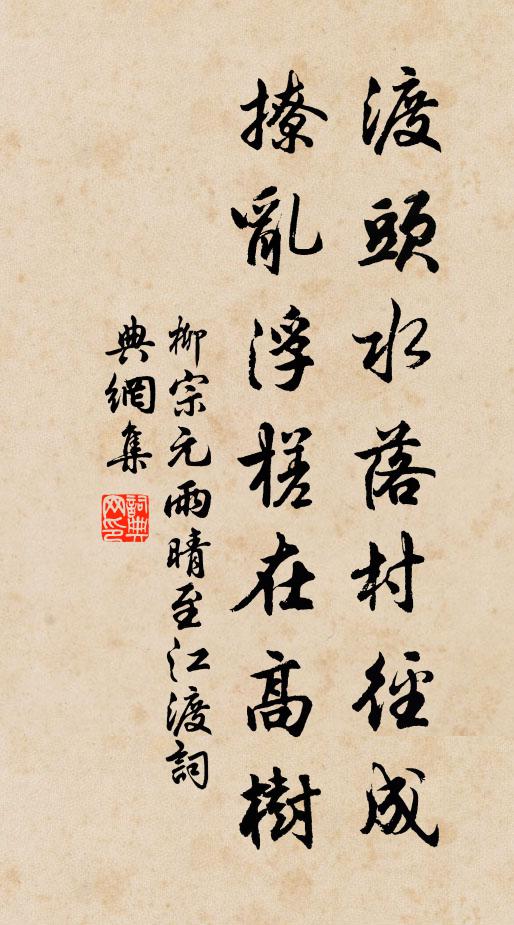 渡頭水落村徑成
撩亂浮槎在高樹
柳宗元雨晴至江渡詞
典網集
詞典網印